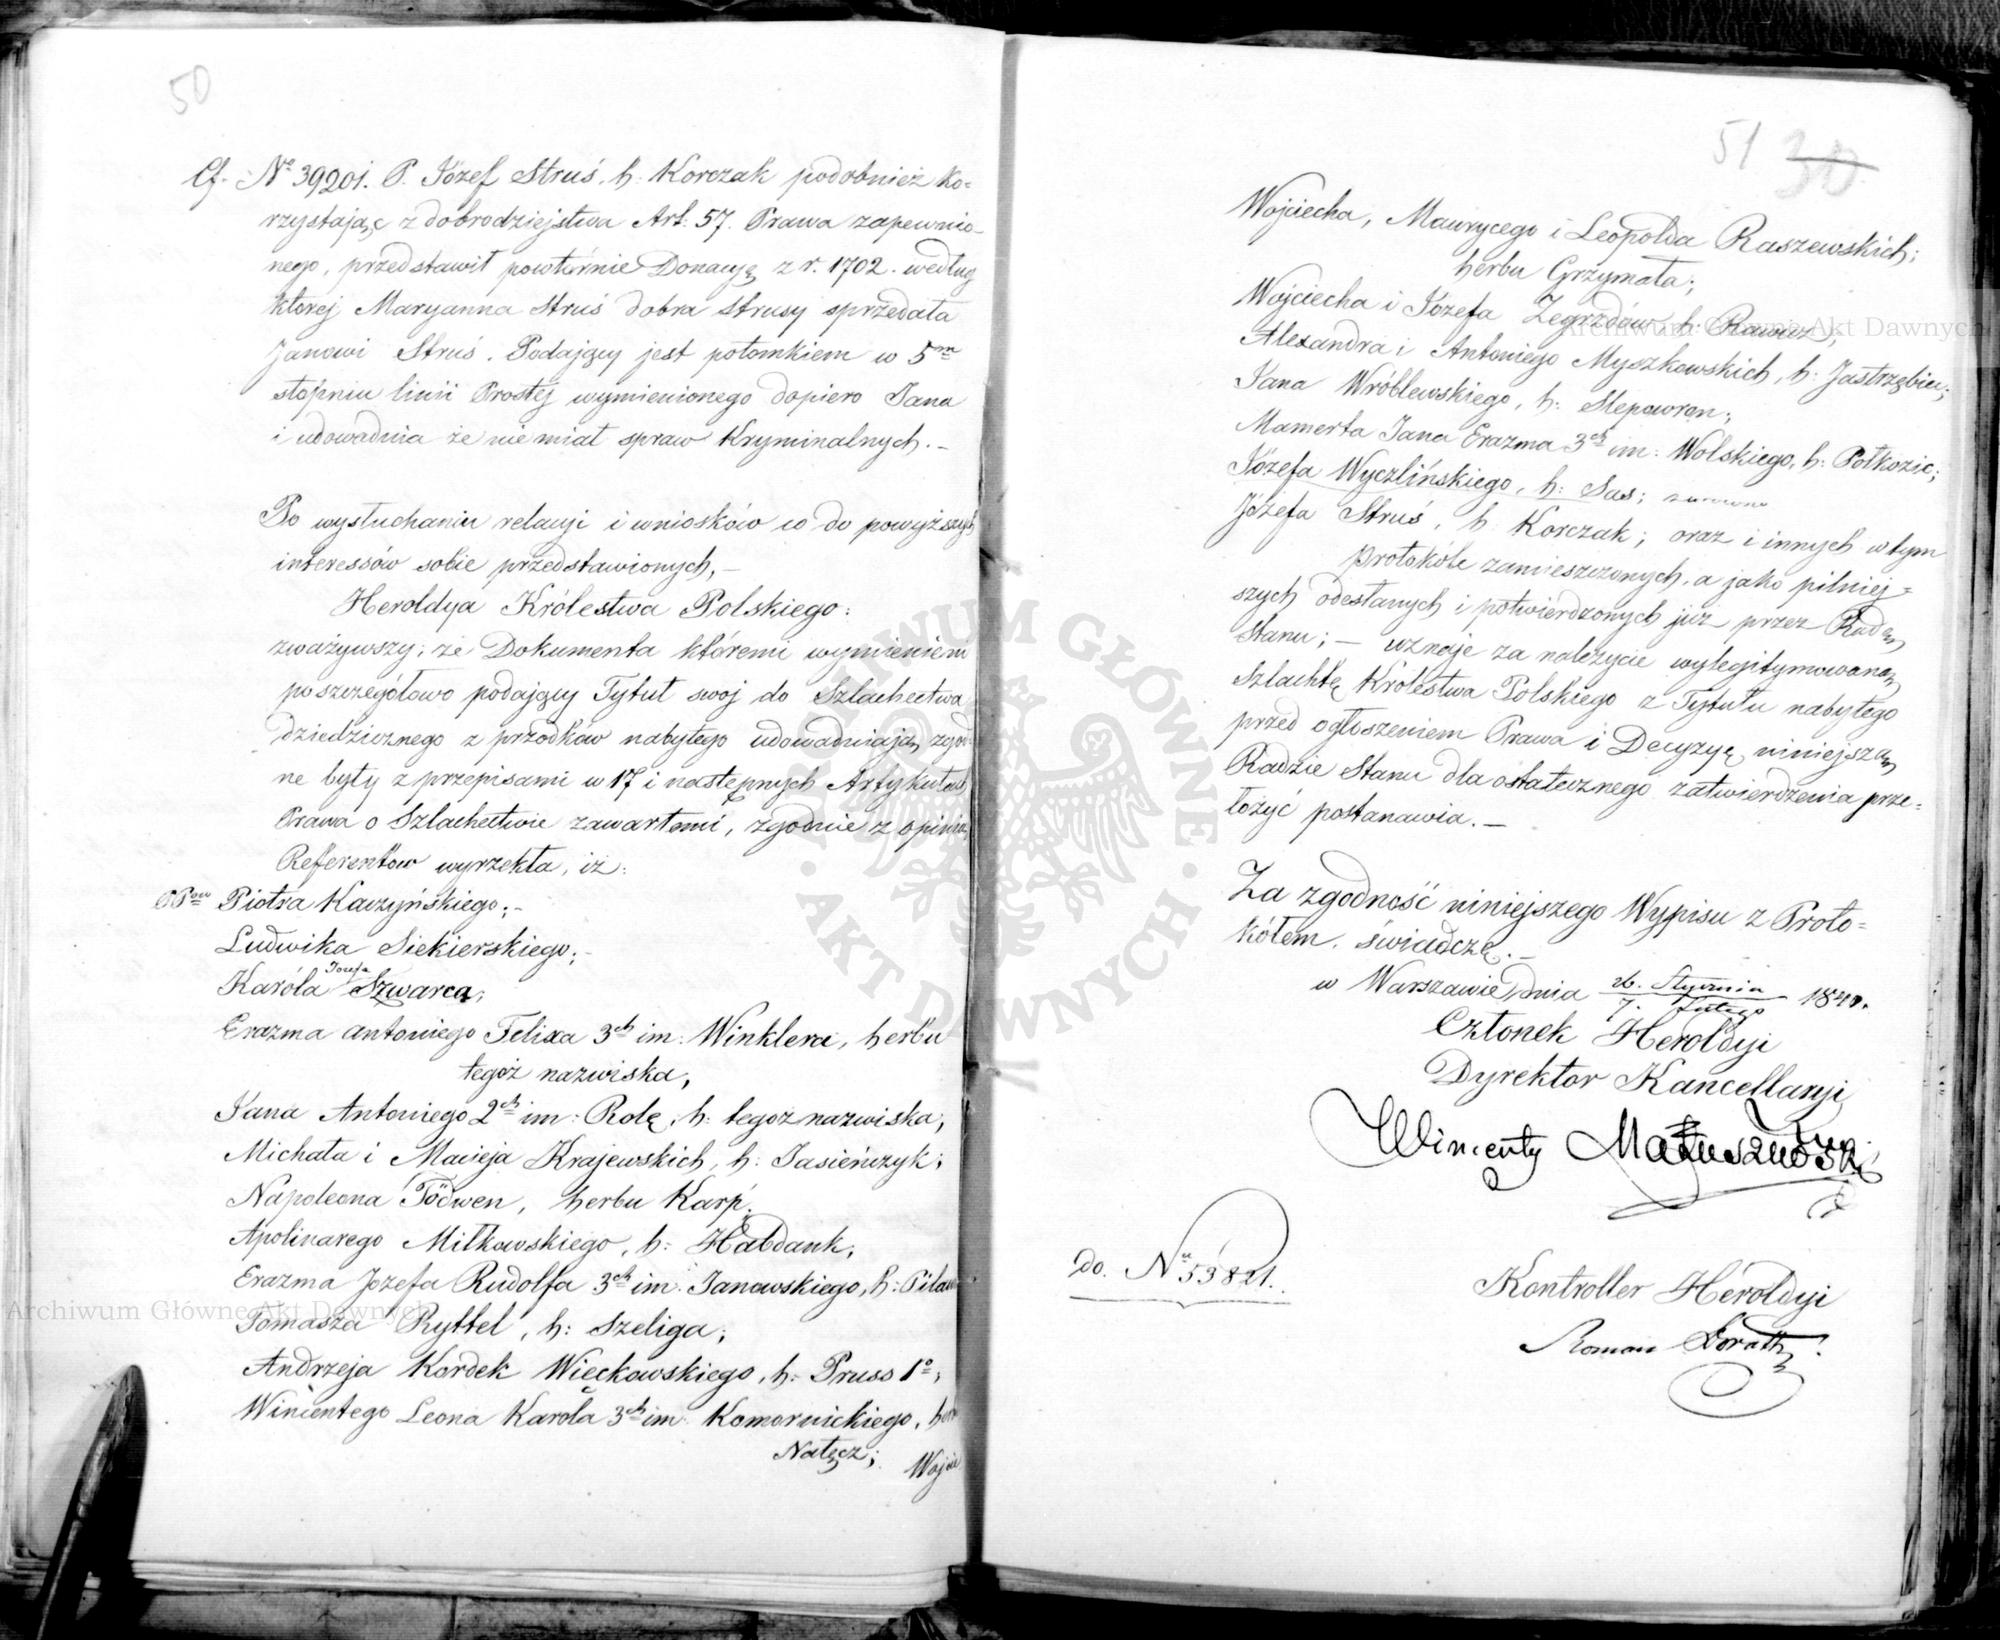 50
Cf. No 39201. P. Józef Struś, h: Korczak podobnież ko-
rzystając z dobrodziejstwa Art: 57. Prawa zapewnio-
nego, przedstawił powtórnie Donacyą z r. 1702. według
której Maryanna Struś dobra Strusy sprzedała
Janowi Struś. Podający jest potomkiem w 5m
stopniu linii Prostej wymienionego dopiero Jana
i udowadnia że nie miał spraw Kryminalnych. –
Po wysłuchaniu relacyi i wniosków co do powyższych
interessów sobie przedstawionych, –
Heroldya Królestwa Polskiego:
zważywszy; że Dokumenta któremi wymienieni
poszczegółowo podający Tytuł swój do Szlachectwa
dziedzicznego z przodków nabytego udowadniają, zgod-
ne były z przepisami w 17 i następnych Artykułach
Prawa o Szlachectwie zawartemi, zgodnie z opinią
Referentów wyrzekła, iż:
PPnów Piotra Kaczyńskiego; –
Ludwika Siekierskiego; –
Karóla Józefa Szwarca;
Erazma Antoniego Felixa 3ch im: Winklera, herbu
tegoż nazwiska,
Jana Antoniego 2ch im: Rolę, h: tegoż nazwiska,
Michała i Macieja Krajewskich, h: Jasieńczyk;
Napoleona Tödwen, herbu Karp;
Apolinarego Miłkowskiego, h: Habdank;
Erazma Józefa Rudolfa 3ch im: Janowskiego, h: Pilawa
Tomasza Ryttel, h: Szeliga;
Andrzeja Kordek Więckowskiego, h: Pruss 1o;
Wincentego Leona Karóla 3ch im: Komornickiego, her
Nałęcz;
Wojcie
51 30
Wojciecha, Maurycego i Leopolda Raszewskich;
herbu Grzymała;
Wojciecha i Józefa Zegrzdów h: Rawicz;
Alexandra i Antoniego Myszkowskich, h: Jastrzębiec;
Jana Wróblewskiego, h: Slepowron;
Mamerta Jana Erazma 3ch im: Wolskiego, h: Półkozic;
Józefa Wyczlińskiego, h: Sas;
Józefa Struś, h: Korczak; oraz i innych w tym
Protokóle zamieszczonych, a jako pilniej-
szych odesłanych i potwierdzonych już przez Radę
Stanu; – uznaje za należycie wylegitymowaną
Szlachtę Królestwa Polskiego z Tytułu nabytego
przed ogłoszeniem Prawa i Decyzyę niniejszą
Radzie Stanu dla ostatecznego zatwierdzenia prze-
łożyć postanawia. –
Za zgodność niniejszego Wypisu z Proto-
kółem, świadczę. –
w Warszawie dnia 26. Stycznia / 7. Lutego 1840.
Członek Heroldyi
Dyrektor Kancellaryi
Wincenty Matuszewski
do. No 53821.
Kontroller Heroldyi
Roman
ARCHIWUM GŁÓWNE AKT DAWNYCH
Archiwum Główne Akt Dawnych
Archiwum Główne Akt Dawnych